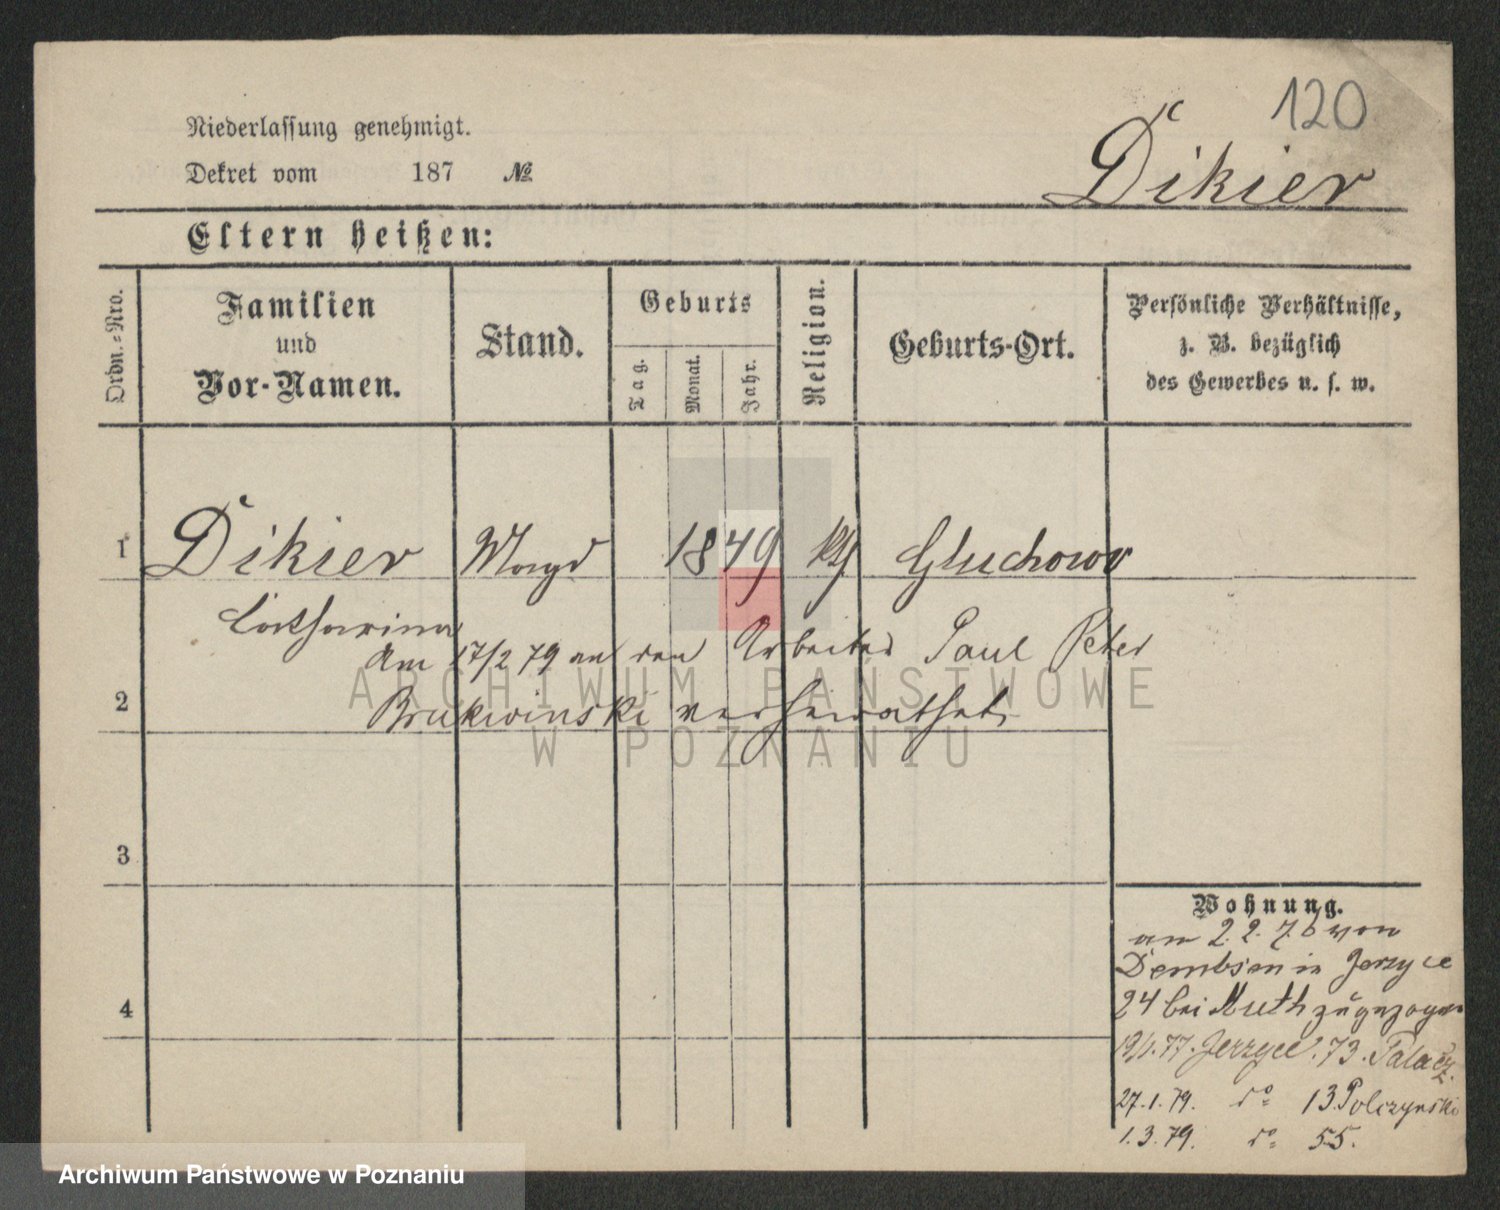 120
Niederlassung genehmigt.
Dekret vom 187 №
Dikier
Eltern heißen:
Ordn.-Nro.
Familien
und
Vor-Namen.
Stand.
Geburts
Tag.
Monat.
Jahr.
Religion.
Geburts-Ort.
Persönliche Verhältnisse,
z. B. bezüglich
des Gewerbes u. s. w.
1 Dikier Magd 1849 kth Gluchowo
Catharina
Am 17/2 79 an den Arbeiter Paul Peter
2 Brukwinski verheirathet.
3
4
Wohnung.
am 2. 2. 76 von
Dembsen in Jerzyce
24 bei Muth zugezogen
19/1. 77. Jerzyce 73. Palacz.
27. 1. 79. do 13 Polczynski
1. 3. 79. do 55.
ARCHIWUM PAŃSTWOWE
W POZNANIU
Archiwum Państwowe w Poznaniu